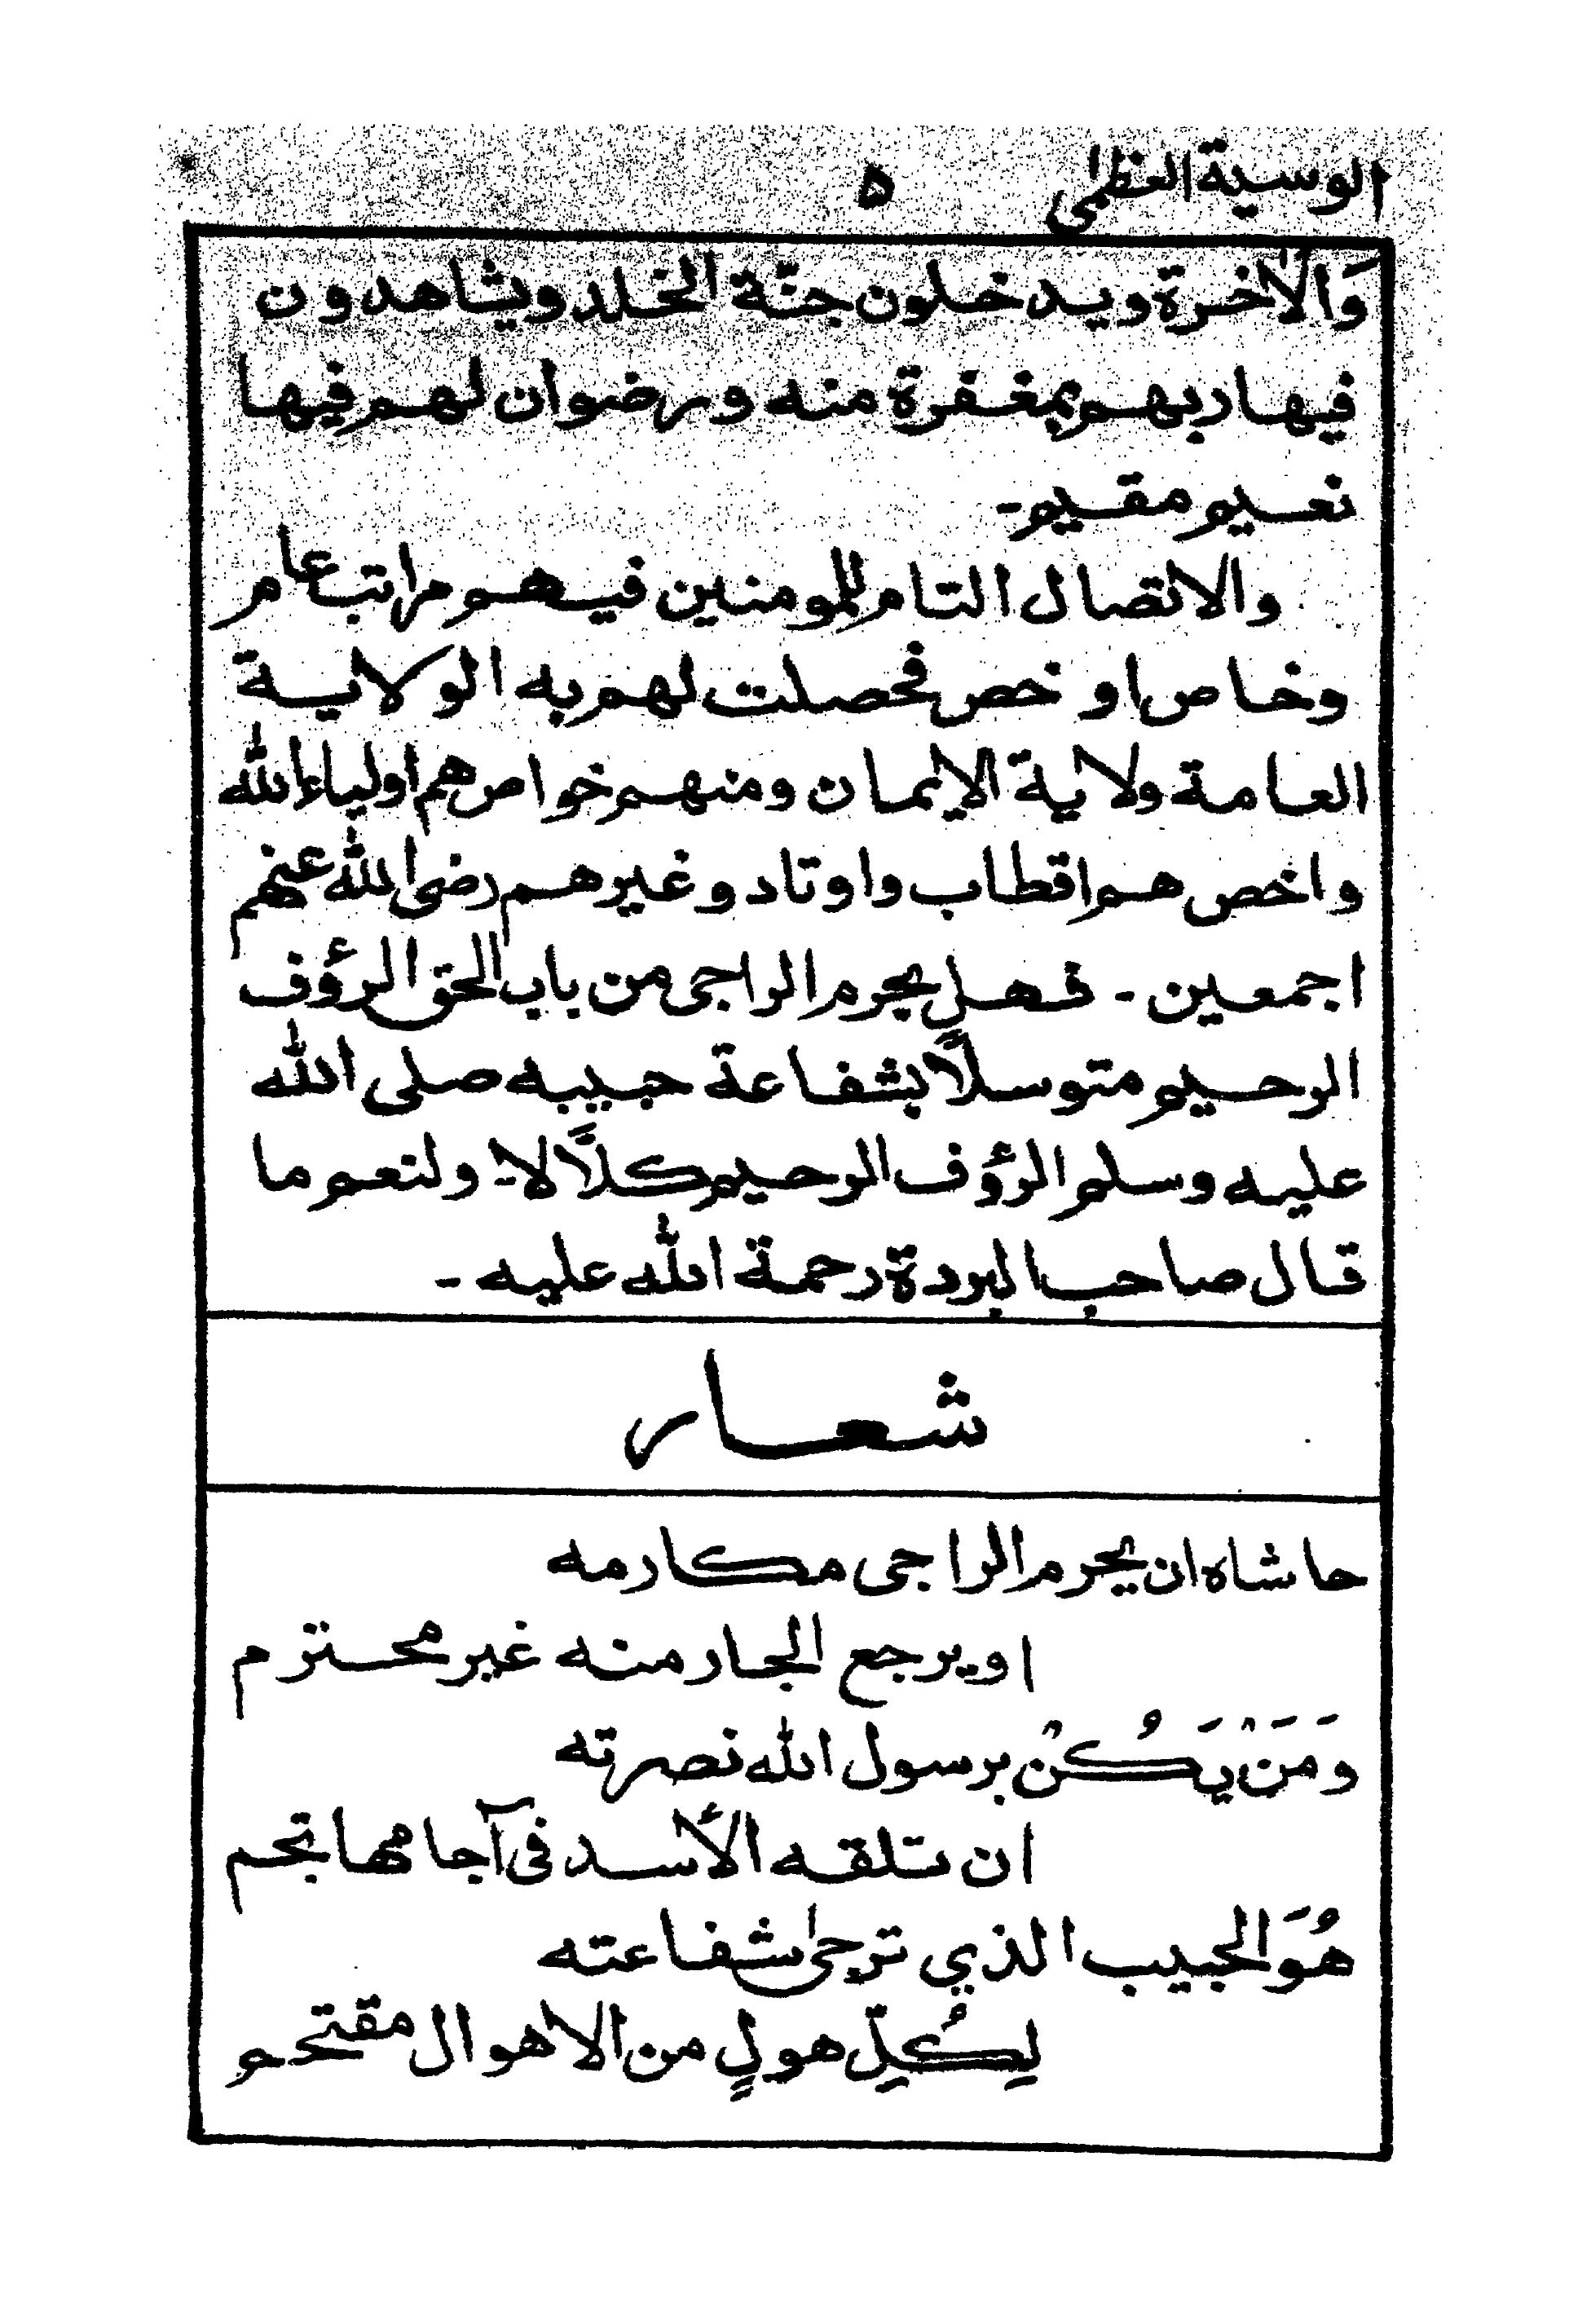 الوسية العظمى ٥
وَالاٰخرة ويدخلون جنّة الخلد ويشاهدون
فيها ربهم بمغفرة منه ورضوان لهم فِيها
نعيم مقيم-
والاتصال التام للمومنين فيهم مراتب عام
وخاص او خص فحصلت لهم به الولاية
العامة ولاية الايمان ومنهم خواص هم اولياء الله
واخص هم اقطاب واوتاد وغيرهم رضى الله عنهم
اجمعين - فهلٍ يحرم الراجى من باب الحق الرؤف
الرحيم متوسلًا بشفاعة حبيبه صلى الله
عليه وسلم الرؤف الرحيم كلاًّ لا- ولنعم ما
قال صاحب البردة رحمة الله عليه -
شعار
حاشاه ان يحرم الراجى مكارمه
او يرجع الجار منه غير محترم
وَمَنْ يَكُنْ برسول الله نصرته
ان تلقه الأسد فى آجامها تجم
هُوَ الحبيب الذي ترجىٰ شفاعته
لِكُلِّ هولٍ من الاهوال مقتحم